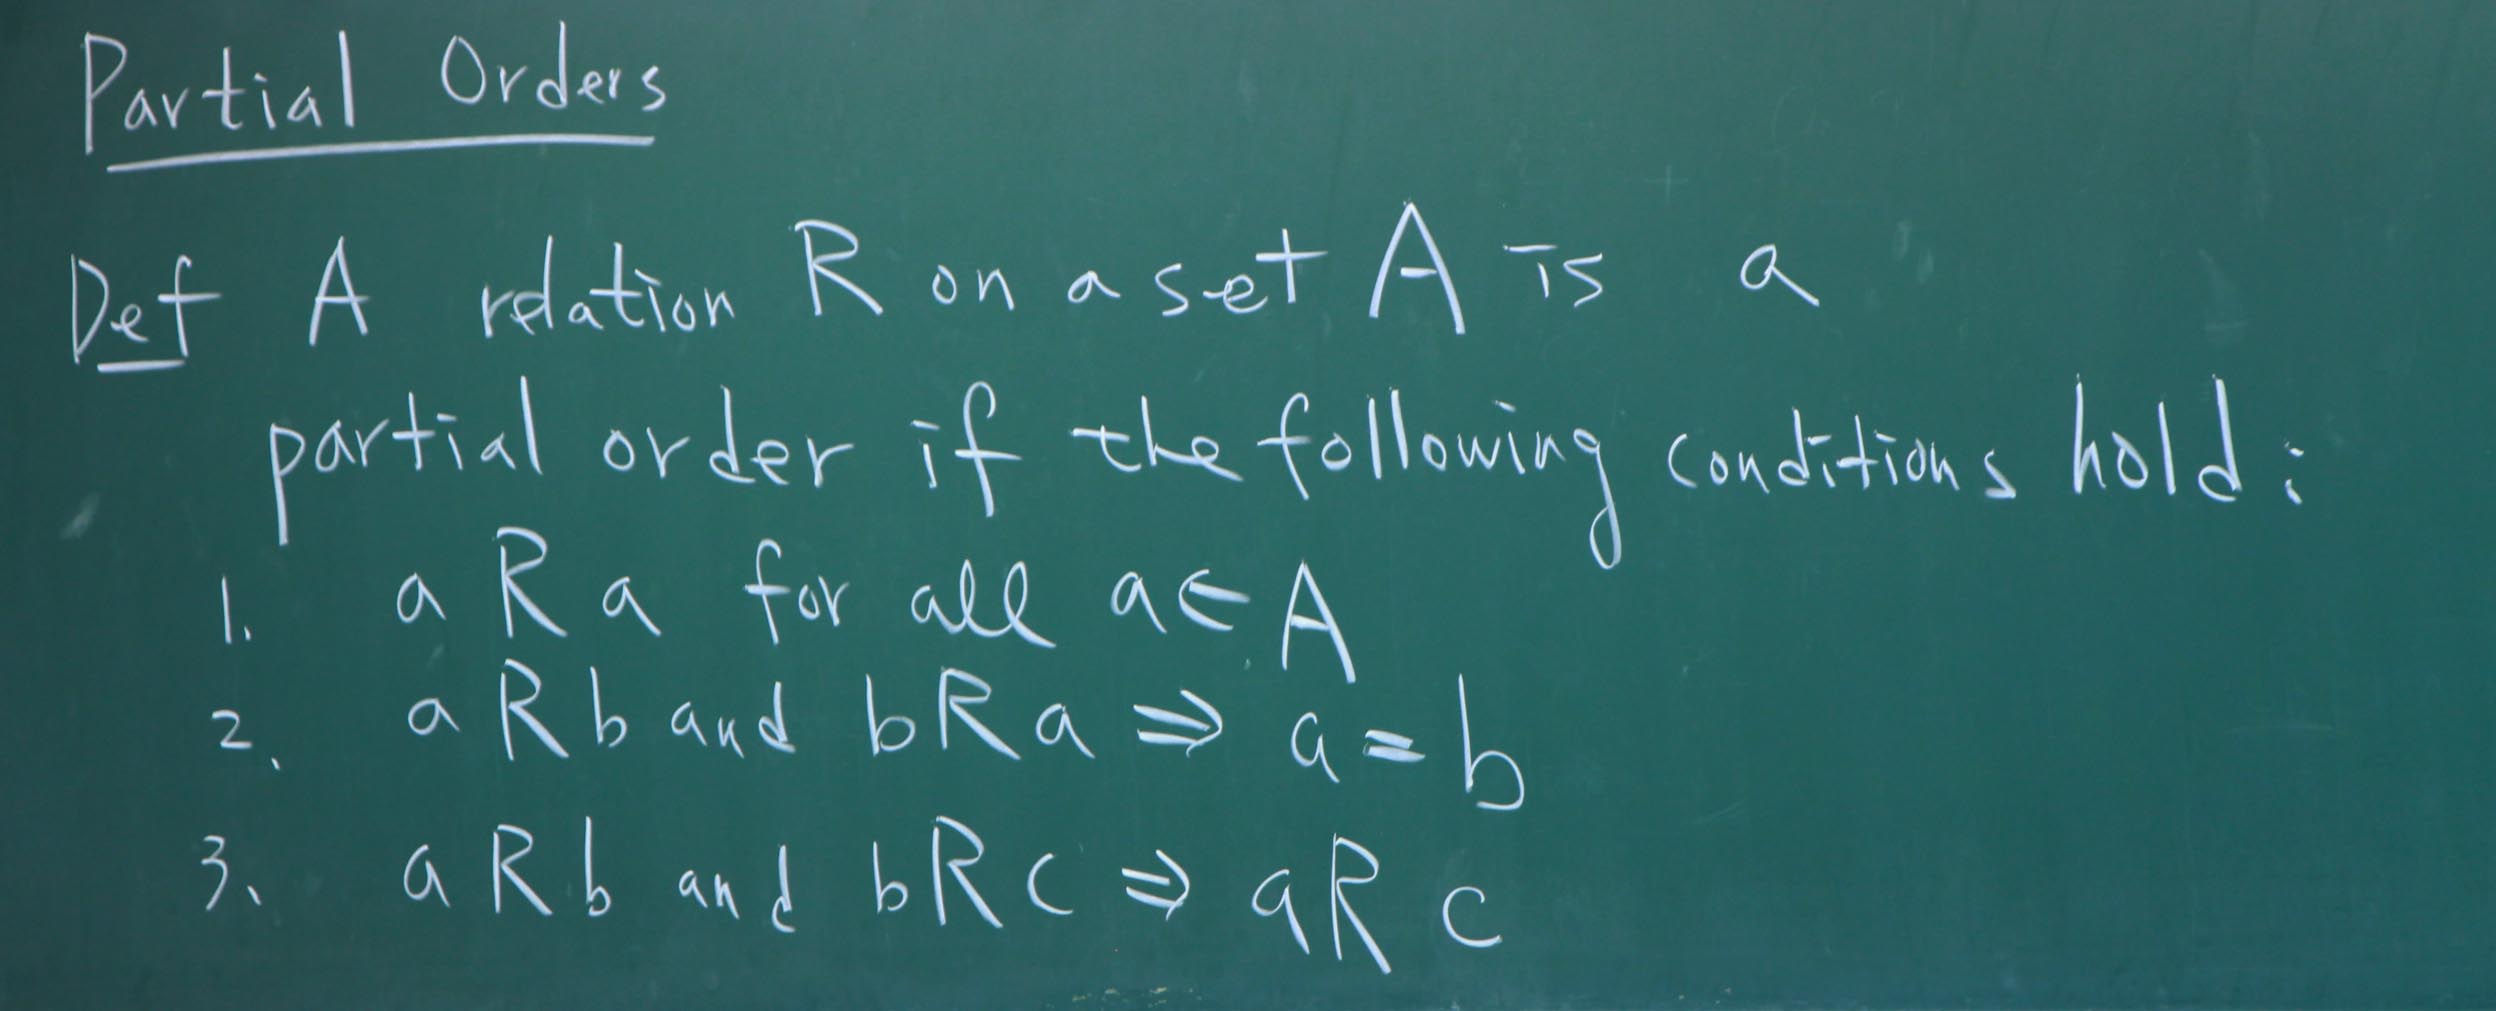 Partial Orders
Def A relation R on a set A is a
partial order if the following conditions hold:
1. a R a for all a ∈ A
2. a R b and b R a ⇒ a = b
3. a R b and b R c ⇒ a R c